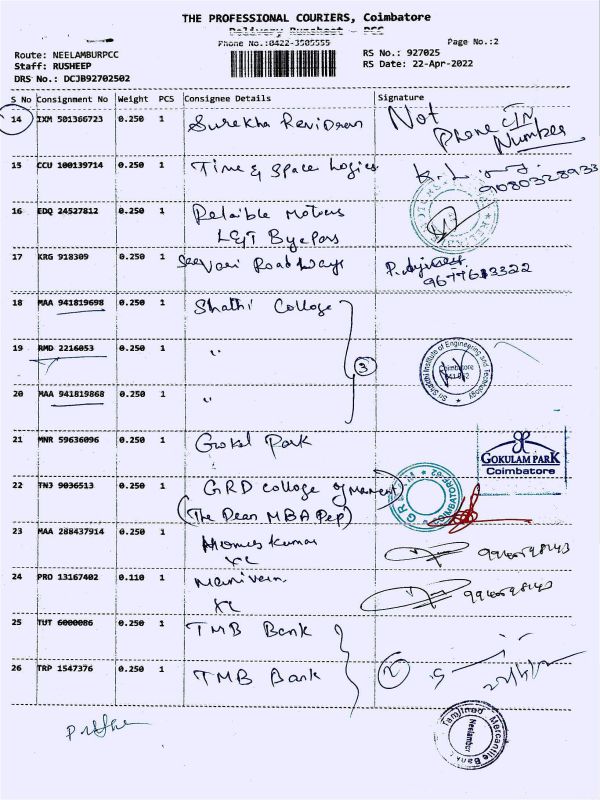 THE PROFESSIONAL COURIERS, Coimbatore
Delivery Runsheet - PCC
Phone No.:0422-3505555
Page No.:2
Route: NEELAMBURPCC
RS No.: 927025
Staff: RUSHEEP
RS Date: 22-Apr-2022
DRS No.: DCJB92702502
S No Consignment No Weight PCS Consignee Details Signature
14 IXM 501366723 0.250 1 Surekha Ravidran Not Phone
Number
15 CCU 100139714 0.250 1 Time & Space Logics
9080328933
16 EDQ 24527812 0.250 1 Relaible Motors
L&T Byepass
17 KRG 918309 0.250 1 Seevari Roadways
9677613322
18 MAA 941819698 0.250 1 Shathi College
19 RMD 2216053 0.250 1 "
3
Sri Shakthi Institute of Engineering and Technology
Coimbatore
20 MAA 941819868 0.250 1 "
21 MNR 59636096 0.250 1 Gokul Park
GOKULAM PARK
Coimbatore
22 TNJ 9036513 0.250 1 GRD College of
(The Dean MBA Dep)
23 MAA 288437914 0.250 1 Kumar
24 PRO 13167402 0.110 1
25 TUT 6000086 0.250 1 TMB Bank
2
26 TRP 1547376 0.250 1 TMB Bank
Tamilnad Mercantile Bank
Neelambur